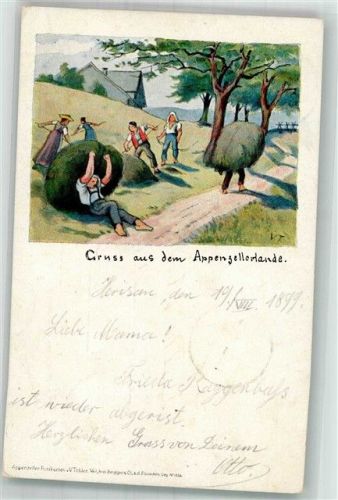 Gruss aus dem Appenzellerlande.
Herisau, den 19/VIII 1899.
Liebe Mama!
Frieda Raggenbass
ist wieder abgereist.
Herzlichen Gruss von Deinem
Otto.
Appenzeller Postkarten v. V. Tobler.